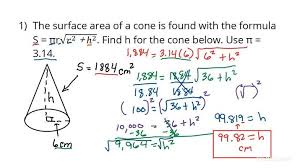 1) The surface area of a cone is found with the formula
S = πr√r² + h². Find h for the cone below. Use π =
3.14.
1,884 = 3.14(6)√6² + h²
S = 1884 cm²
1,884 = 18.84√36 + h²
18.84 18.84
(100)² = (√36 + h²)²
10,000 = 36 + h²
-36 -36
√9,964 = √h²
99.819 = h
99.82 = h
cm
h
6cm